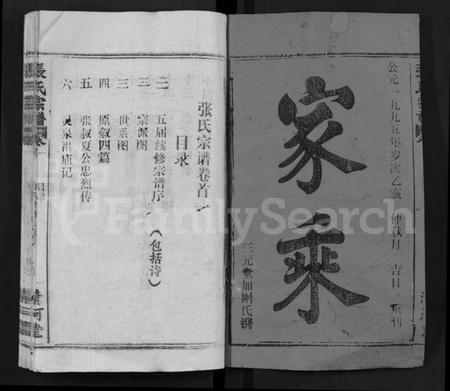 公元一九九五年岁次乙亥 仲秋月 吉日 重刊
家乘
三元堂加刚氏镌
张氏宗谱卷首一
目录
一 五届续修宗谱序（包括诗）
二 宗派图
三 世系图
四 原叙四篇
五 张叔夏公忠烈传
六 祖庙记
張氏宗譜
清河堂
FamilySearch